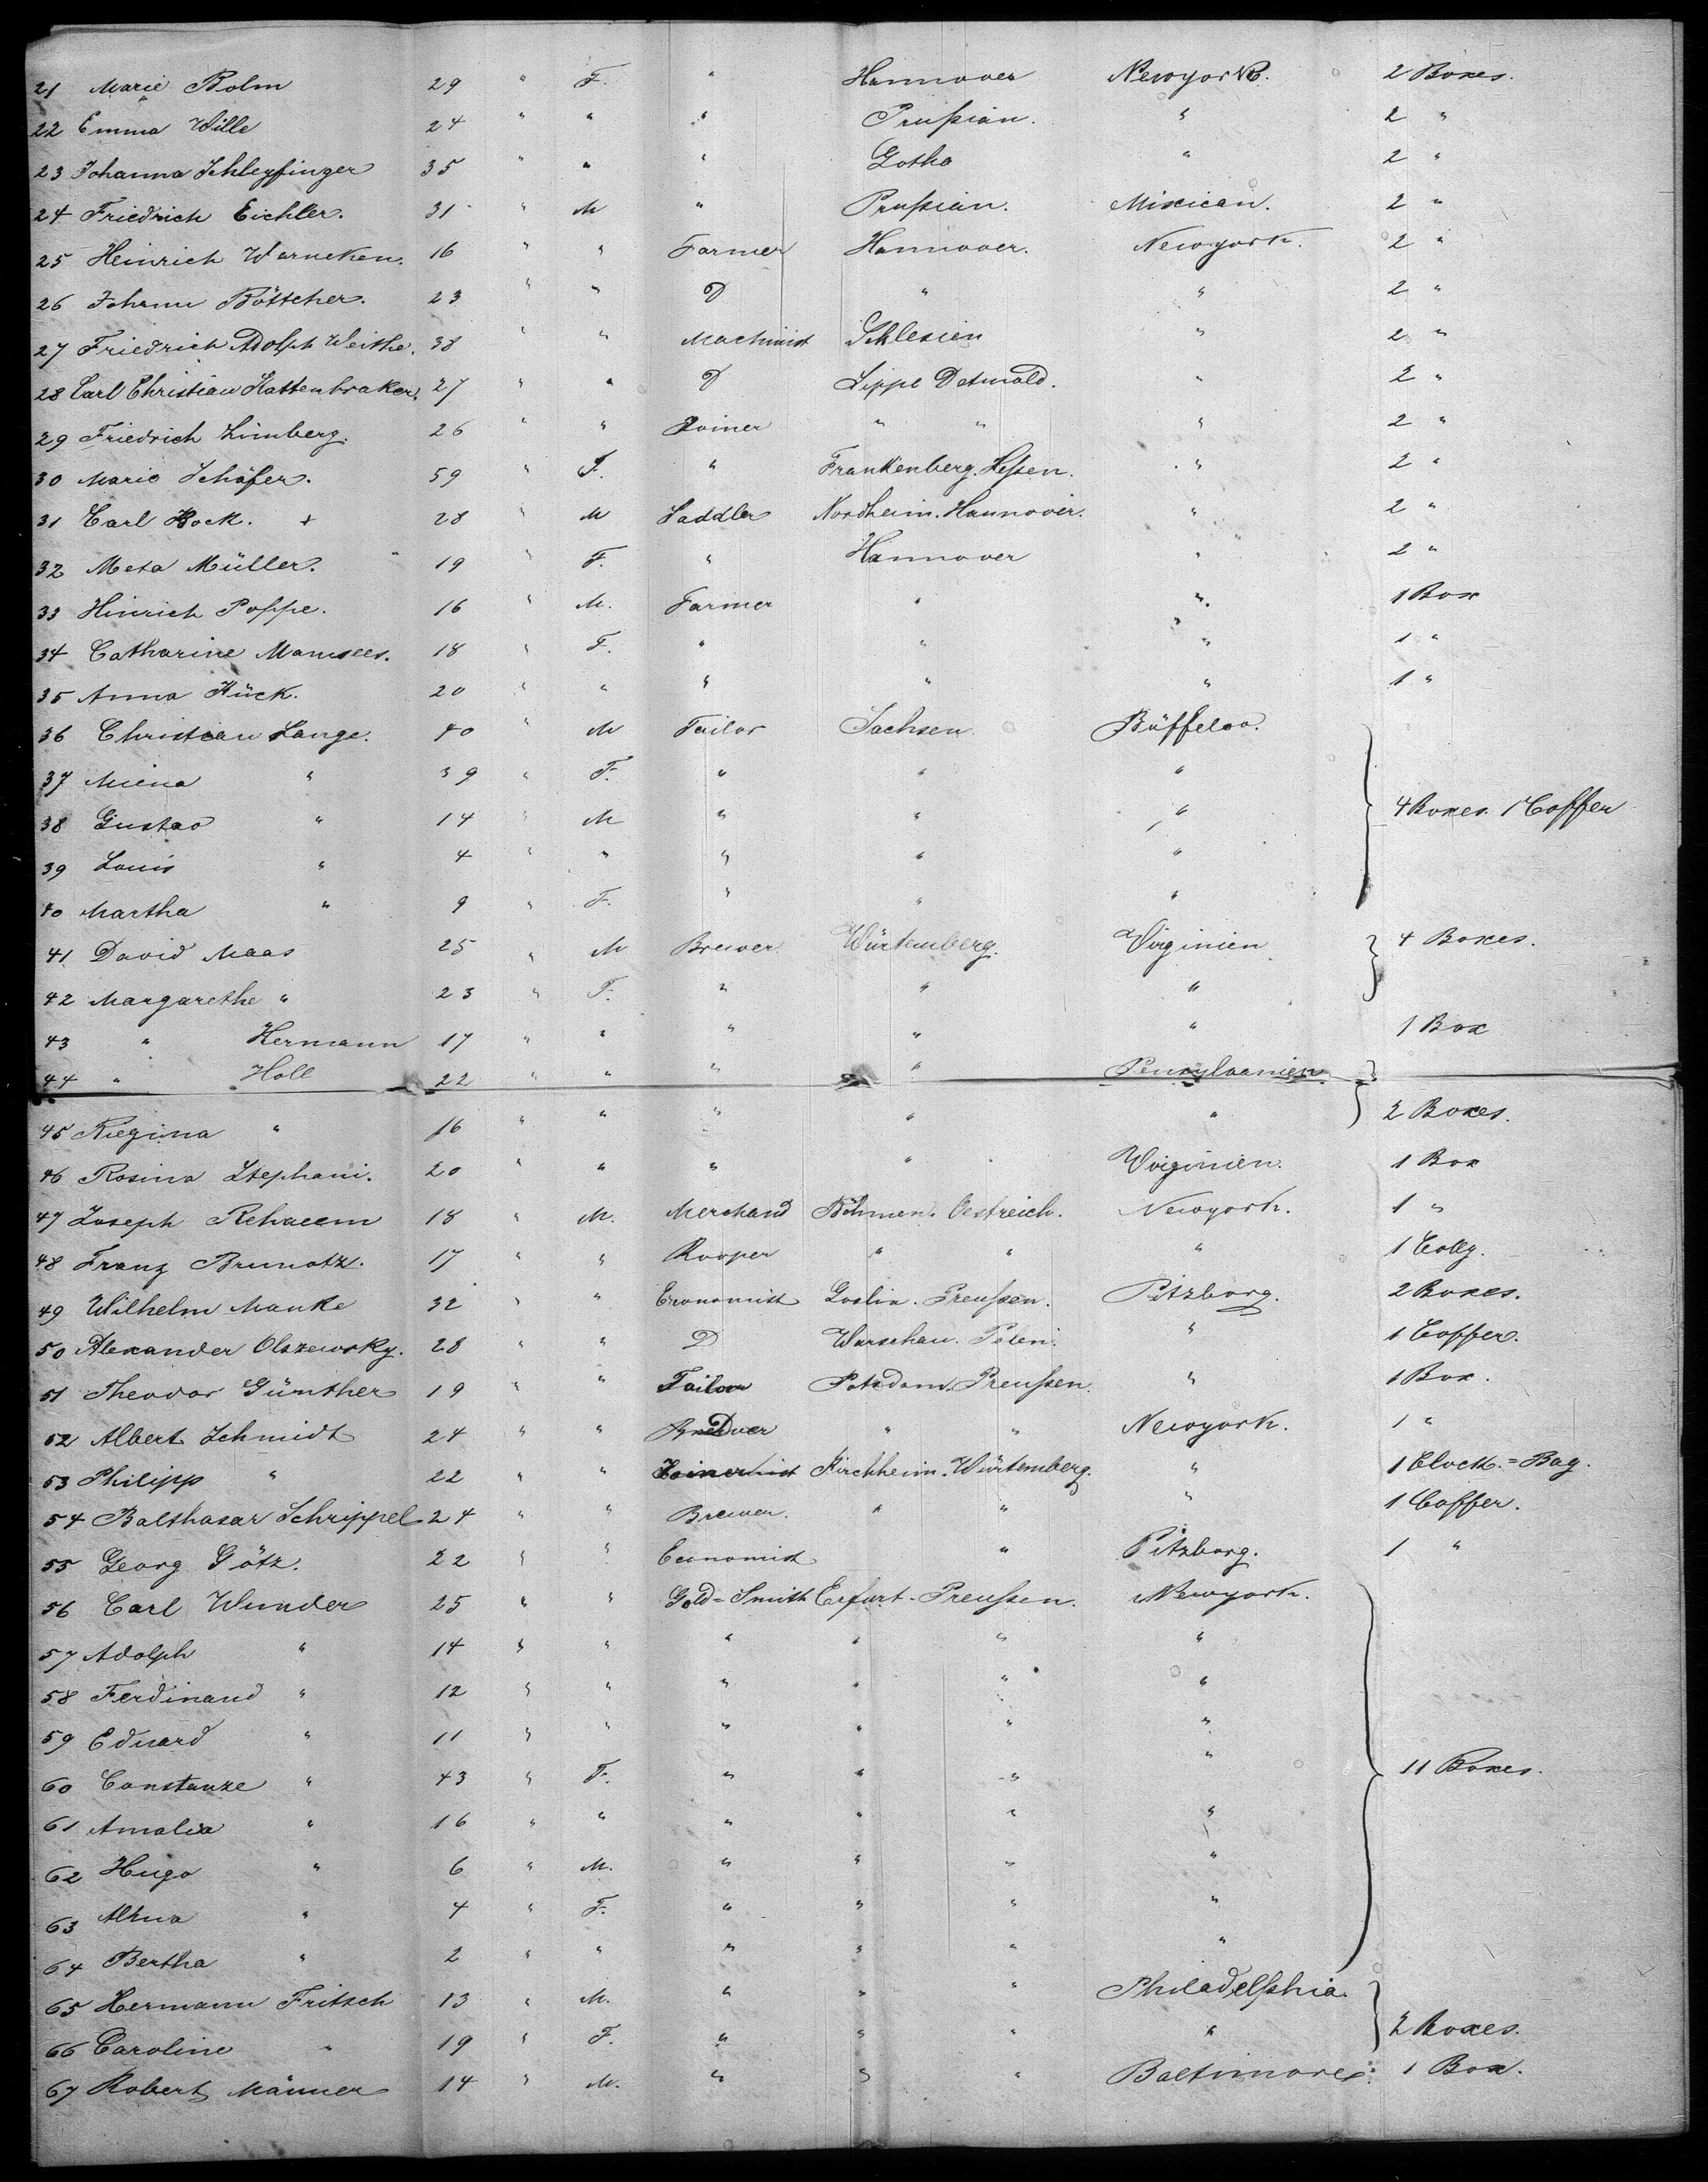 21 Marie Bolm 29 " F. " Hannover Newyork. 2 Boxes.
22 Emma Wille 24 " " " Prußian. " 2 "
23 Johanna Schleyfinger 35 " " " Gotha " 2 "
24 Friedrich Eichler. 31 " M " Prußian. Mixican. 2 "
25 Heinrich Warneken. 16 " " Farmer Hannover. Newyork. 2 "
26 Johann Böttcher. 23 " " D " " 2 "
27 Friedrich Adolph Weithe. 38 " " Machinist Schlesien " 2 "
28 Carl Christian Hattenbraker. 27 " " D Lippe Detmold. " 2 "
29 Friedrich Limberg. 26 " " Joiner " " " 2 "
30 Marie Schäfer. 59 " F. " Frankenberg. Heßen. " 2 "
31 Carl Bock. + 28 " M Saddler Nordheim. Hannover. " 2 "
32 Meta Müller. 19 " F. " Hannover " 2 "
33 Hinrich Poppe. 16 " M. Farmer " " 1 Box
34 Catharine 18 " F. " " " 1 "
35 Anna Hück. 20 " " " " " 1 "
36 Christian Lange. 40 " M Tailor Sachsen Büffeloo.
37 Miena " 39 " F. " " "
38 Gustav " 14 " M " " " 4 Boxes. 1 Coffer
39 Louis " 4 " " " " "
40 Martha " 9 " F. " " "
41 David Maas 25 " M Brewer Würtemberg. Virginien 4 Boxes.
42 Margarethe " 23 " F. " " "
43 " Hermann 17 " " " " " 1 Box
44 " Holl 22 " " " " Pensylvanien
45 Riegina " 16 " " " " " 2 Boxes.
46 Rosina Stephani. 20 " " " " Virginien. 1 Box
47 Joseph 18 " M. Merchand Böhmen. Oestreich. Newyork. 1 "
48 Franz Brunotz. 17 " " Kooper " " " 1 Colly.
49 Wilhelm Manke 32 " " Economist Preußen. Pitzborg. 2 Boxes.
50 Alexander Olszewsky. 28 " " D Warschau. Polen. " 1 Coffer.
51 Theodor Günther 19 " " Tailor Potsdam. Preußen. " 1 Box.
52 Albert Schmidt 24 " " D " " Newyork. 1 "
53 Philipp " 22 " " Kirchheim. Würtemberg. " 1 Clock.=Bag.
54 Balthasar Schrippel 24 " " Brewer. " " " 1 Coffer.
55 Georg Götz. 22 " " Economist " Pitzborg. 1 "
56 Carl Wunder 25 " " Gold=Smith Erfurt. Preußen. Newyork.
57 Adolph " 14 " " " " " "
58 Ferdinand " 12 " " " " " "
59 Eduard " 11 " " " " " "
60 Constanze " 43 " F. " " " " 11 Boxes.
61 Amalia " 16 " " " " " "
62 Hugo " 6 " M. " " " "
63 " 4 " F. " " " "
64 Bertha " 2 " " " " " "
65 Hermann Fritsch 13 " M. " " " Philadelphia.
66 Caroline " 19 " F. " " " " 2 Boxes.
67 Robert Männer 14 " M. " " " Baltimore. 1 Box.